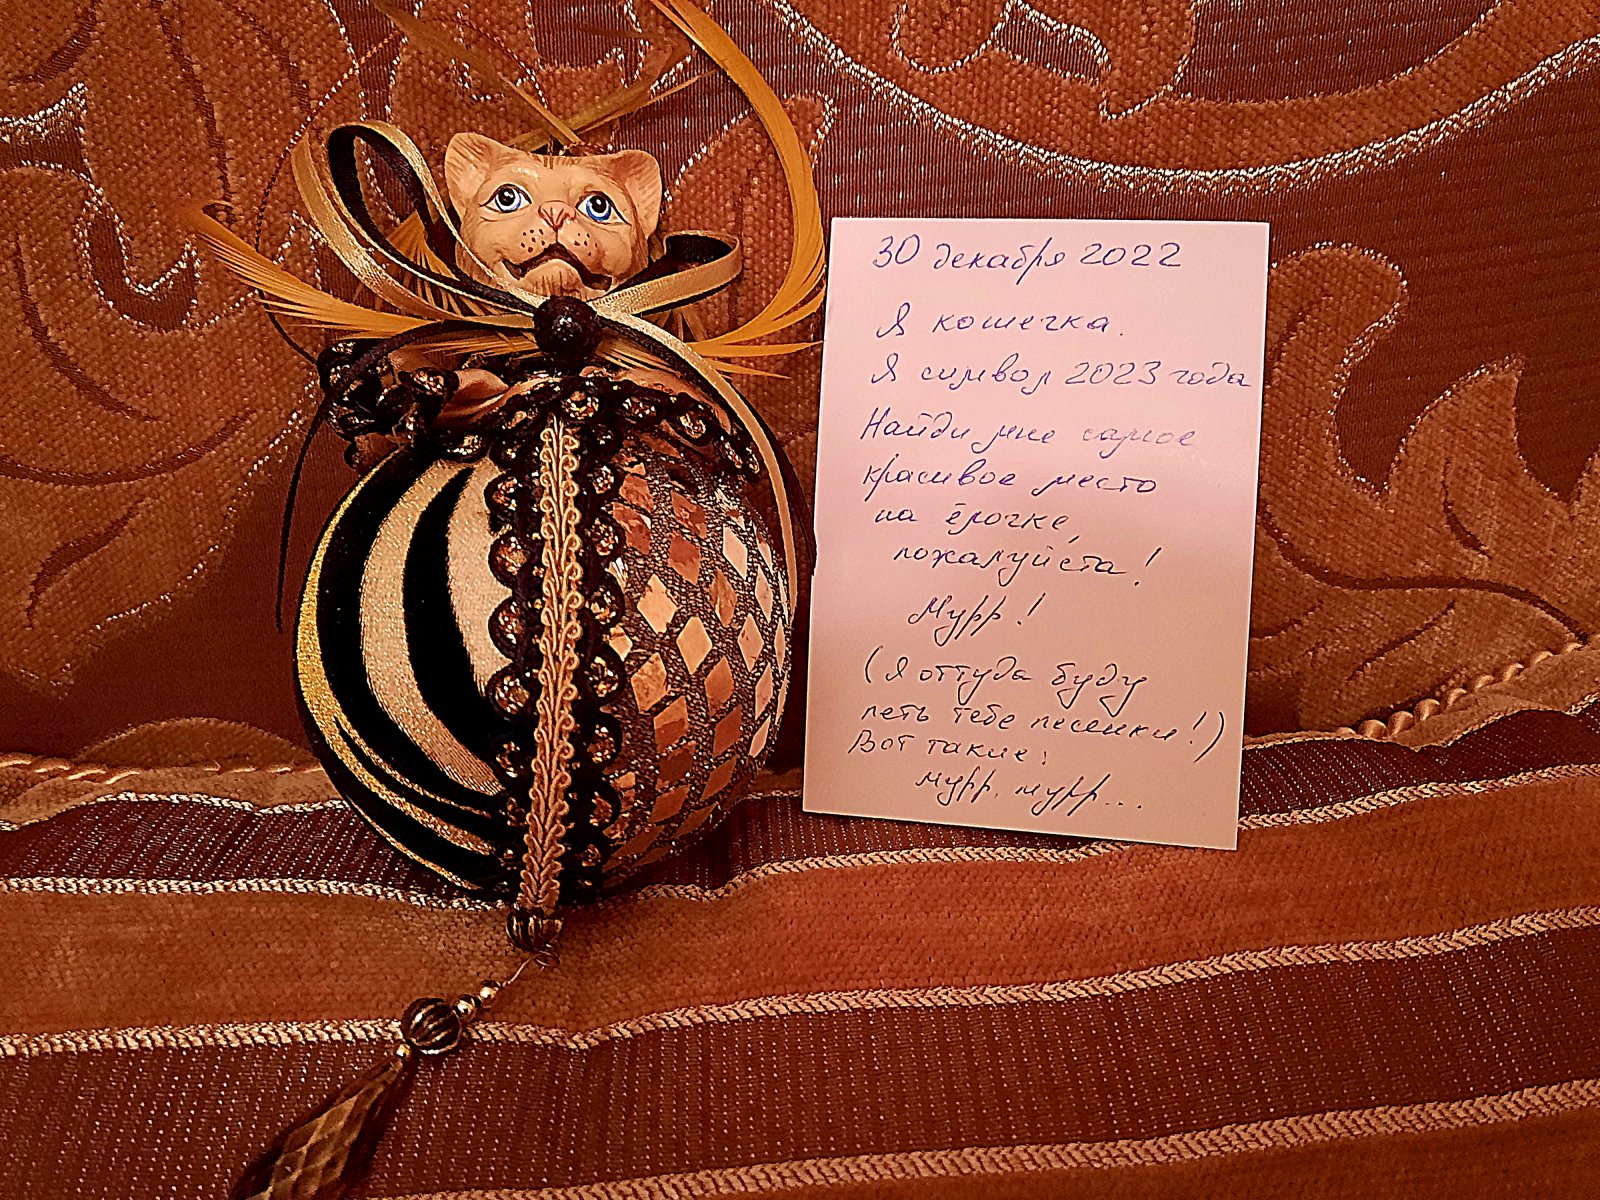 30 декабря 2022
Я кошечка.
Я символ 2023 года
Найди мне самое
красивое место
на ёлочке,
пожалуйста!
Мурр!
(Я оттуда буду
петь тебе песенки!)
Вот такие:
мурр, мурр...